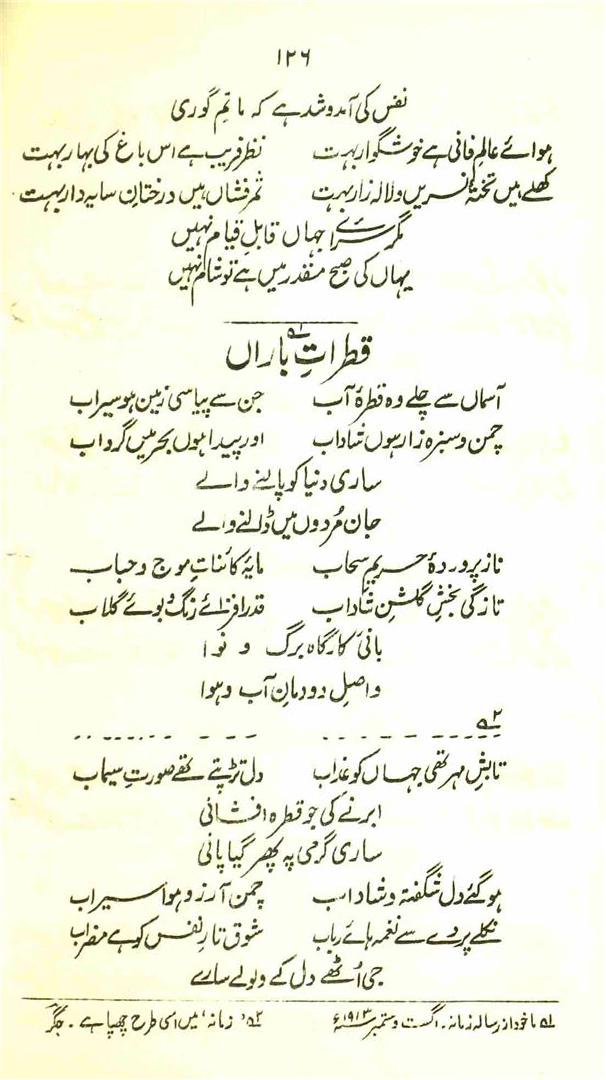 ۱۲۶
نفس کی آمد و شد ہے کہ ماتمِ گوری
ہوائے عالمِ فانی ہے خوشگوار بہت نظر فریب ہے اس باغ کی بہار بہت
کھلے ہیں تختۂ نسریں و لالہ زار بہت ثمر فشاں ہیں درختانِ سایہ دار بہت
مگر سرائے جہاں قابلِ قیام نہیں
یہاں کی صبح مقدر میں ہے تو شام نہیں
قطراتِ باراں ؎۱
آسماں سے چلے وہ قطرۂ آب جن سے پیاسی زمین ہو سیراب
چمن و سبزہ زار ہوں شاداب اور پیدا ہوں بحر میں گرداب
ساری دنیا کو پالنے والے
جان مُردوں میں ڈالنے والے
ناز پروردۂ حریمِ سحاب مایۂ کائناتِ موج و حباب
تازگی بخشِ گلشنِ شاداب قدر افزائے رنگ و بوئے گلاب
بانیٔ کارگاہ برگ و نوا
واصلِ دودمانِ آب و ہوا
؎۲
۔۔۔۔۔۔۔۔۔۔۔۔ ۔۔۔۔۔۔۔۔۔۔۔۔
تابشِ مہر تھی جہاں کو عذاب دل تڑپتے تھے صورتِ سیماب
ابر نے کی جو قطرہ افشانی
ساری گرمی پہ پھر گیا پانی
ہو گئے دل شگفتہ و شاداب چمن آرزو ہوا سیراب
نکلے پردے سے نغمہ ہائے رباب شوق تارِ نفس کو ہے مضراب
جی اُٹھے دل کے ولولے سارے
؎۱ ماخوذ از رسالہ زمانہ۔ اگست و ستمبر سنہ ۱۹۱۳ء ؎۲ ’زمانہ‘ میں اسی طرح چھپا ہے۔ جگر